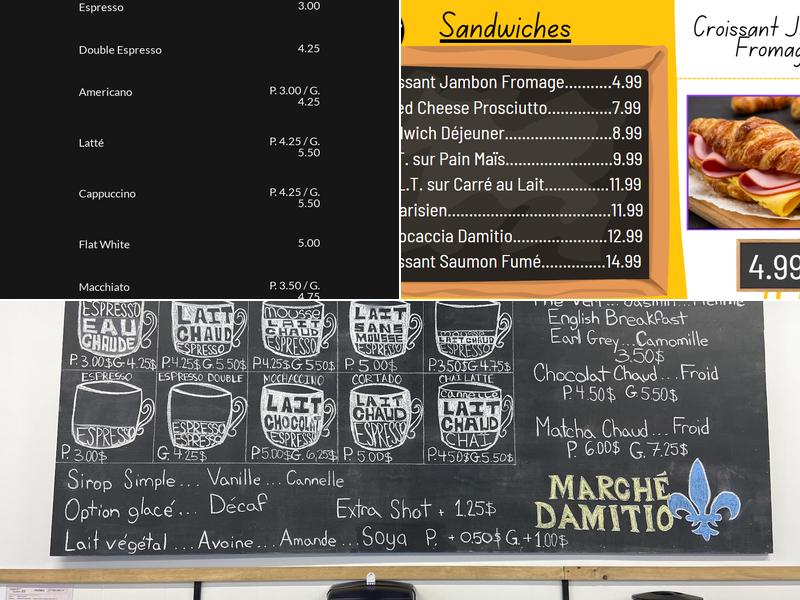 Espresso 3.00
Double Espresso 4.25
Americano P. 3.00 / G. 4.25
Latté P. 4.25 / G. 5.50
Cappuccino P. 4.25 / G. 5.50
Flat White 5.00
Macchiato P. 3.50 / G. 4.75
Sandwiches
ssant Jambon Fromage..........4.99
ed Cheese Prosciutto...........7.99
dwich Déjeuner.......................8.99
T. sur Pain Maïs.......................9.99
L.T. sur Carré au Lait..............11.99
arisien....................................11.99
ocaccia Damitio.....................12.99
ssant Saumon Fumé..............14.99
Croissant J
Fromag
4.99
ESPRESSO EAU CHAUDE
LAIT CHAUD ESPRESSO
mousse LAIT CHAUD ESPRESSO
LAIT SANS MOUSSE ESPRESSO
LAIT CHAUD ESPRESSO
P. 3.00$ G. 4.25$
P. 4.25$ G. 5.50$
P. 4.25$ G 5.50$
P. 5.00$
P. 3.50$ G. 4.75$
ESPRESSO
ESPRESSO DOUBLE
MOCHACCINO
CORTADO
CHAI LATTE
ESPRESSO
ESPRESSO ESPRESSO
LAIT CHOCOLAT ESPRESSO
LAIT CHAUD ESPRESSO
cannelle LAIT CHAUD CHAI
P. 3.00$
G. 4.25$
P. 5.00$ G. 6,25$
P. 5.00$
P. 4.50$ G. 5.50$
Sirop Simple... Vanille... Cannelle
Option glacé... Décaf Extra Shot + 1.25$
Lait végétal... Avoine... Amande... Soya P. + 0.50$ G. + 1.00$
Thé Vert... Jasmin... Menthe
English Breakfast
Earl Grey... Camomille
3.50$
Chocolat Chaud... Froid
P. 4.50$ G 5.50$
Matcha Chaud... Froid
P. 6.00$ G. 7.25$
MARCHÉ
DAMITIO